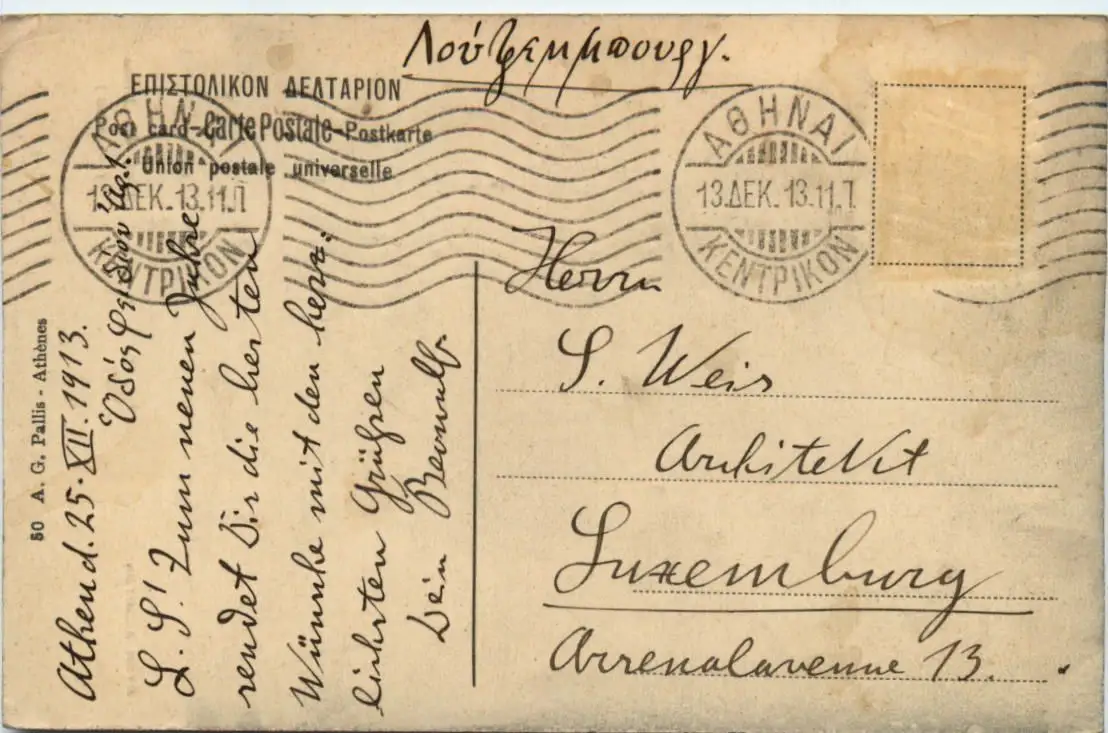 Λούξεμμπουργ.
ΕΠΙΣΤΟΛΙΚΟΝ ΔΕΛΤΑΡΙΟΝ
Post card - Carte Postale - Postkarte
Union postale universelle
ΑΘΗΝΑΙ
13.ΔΕΚ.13.11.Π
ΚΕΝΤΡΙΚΟΝ
ΑΘΗΝΑΙ
13.ΔΕΚ.13.11.Π
ΚΕΝΤΡΙΚΟΝ
50 A. G. Pallis - Athènes
Athen d. 25. XII. 1913.
Ὁδός
L. S! Zum neuen Jahre
sendet Dir die besten
Wünsche mit den herz-
lichsten Grüßen
Dein
Herrn
S. Weis
Architekt
Luxemburg
Arsenalavenue 13.